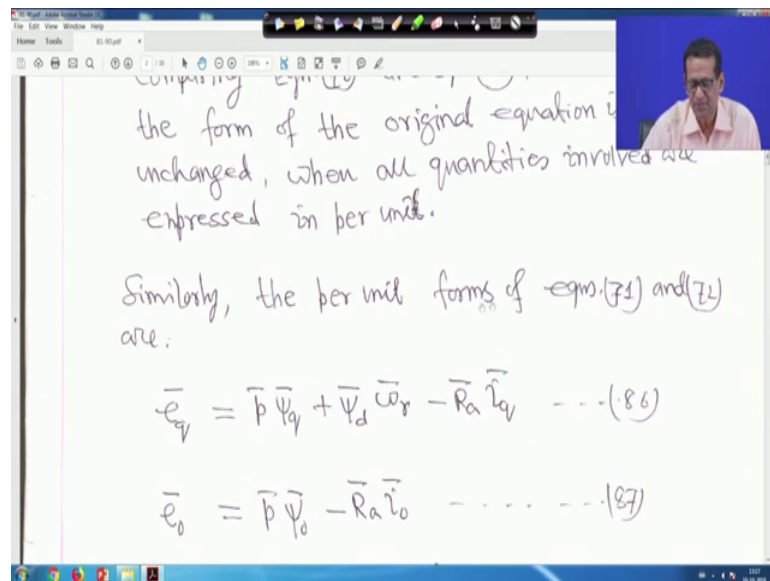 81-90.pdf - Adobe Acrobat Reader DC
File Edit View Window Help
Home Tools 81-90.pdf ×
2 / 10
Comparing eqn.
the form of the original equation
unchanged, when all quantities involved are
expressed in per unit.
Similarly, the per unit forms of eqns.(71) and(72)
are:
e̅_q = p̅ ψ̅_q + ψ̅_d ω̅_r - R̅_a i̅_q ----(86)
e̅_0 = p̅ ψ̅_0 - R̅_a i̅_0 ---- ... ...(87)